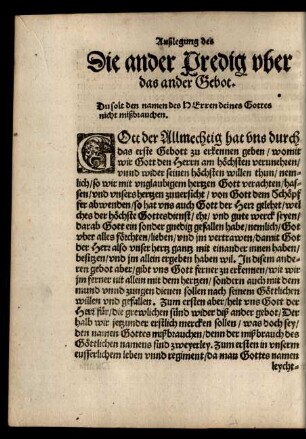 Außlegung des
Die ander Predig vber
das ander Gebot.
Du solt den namen des HErren deines Gottes
nicht mißbrauchen.
GOtt der Allmechtig hat vns durch
das erste Gebott zu erkennen geben / womit
wir Gott den Herrn am höchsten verunehren /
vnnd wider seinen höchsten willen thun / nem-
lich / so wir mit vnglaubigem hertzen Gott verachten / has-
sen / vnd vnsers hertzen zuuersicht / von Gott dem Schöpf-
fer abwenden / so hat vns auch Gott der Herr gelehrt / wel-
ches der höchste Gottesdienst / ehr / vnd gute werck seyen /
darab Gott ein sonder gnedig gefallen habe / nemlich / Got
vber alles förchten / lieben / vnd jm vertrawen / damit Got
der Herr also vnser hertz gantz mit einander innen haben /
besitzen / vnd jm allein ergeben haben wil. In disem ande-
ren gebot aber / gibt vns Gott ferner zu erkennen / wie wir
jm ferner nit allein mit dem hertzen / sonders auch mit dem
mund vnnd zungen dienen sollen nach seinem Göttlichen
willen vnd gefallen. Zum ersten aber / helt vns Gott der
Herr für / die grewlichen sünd wider diß ander gebot / Der
halb wir jetzunder erstlich mercken sollen / was doch sey /
den namen Gottes mißbrauchen / denn der mißbrauch des
Göttlichen namens sünd zweyerley. Zum ersten in vnserm
eusserlichem leben vnnd regiment / da man Gottes namen
leycht-